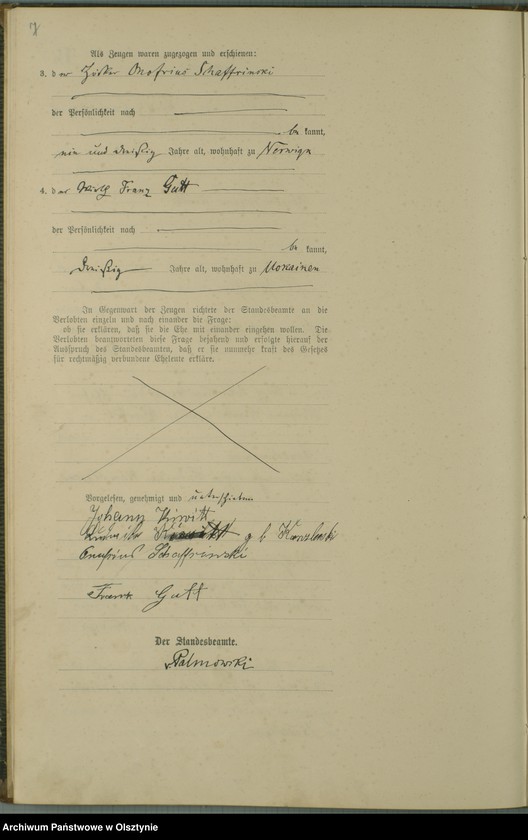 Als Zeugen waren zugezogen und erschienen:
3. der Onofrius Schaffrinski
der Persönlichkeit nach
be kannt,
ein und dreißig Jahre alt, wohnhaft zu
4. der Wirth Franz Gatt
der Persönlichkeit nach
be kannt,
dreißig Jahre alt, wohnhaft zu Mokainen
In Gegenwart der Zeugen richtete der Standesbeamte an die
Verlobten einzeln und nach einander die Frage:
ob sie erklären, daß sie die Ehe mit einander eingehen wollen. Die
Verlobten beantworteten diese Frage bejahend und erfolgte hierauf der
Ausspruch des Standesbeamten, daß er sie nunmehr kraft des Gesetzes
für rechtmäßig verbundene Eheleute erkläre.
Vorgelesen, genehmigt und unterschrieben
Johann
Onofrius Schaffrinski
Franz Gatt
Der Standesbeamte.
Palmowski
Archiwum Państwowe w Olsztynie